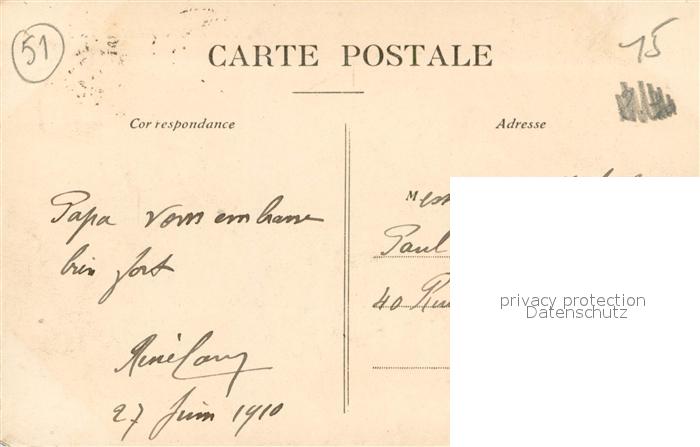 51
15
CARTE POSTALE
Correspondance
Adresse
Papa vous embrasse
bien fort
27 Juin 1910
M
Paul
40 Rue
privacy protection
Datenschutz